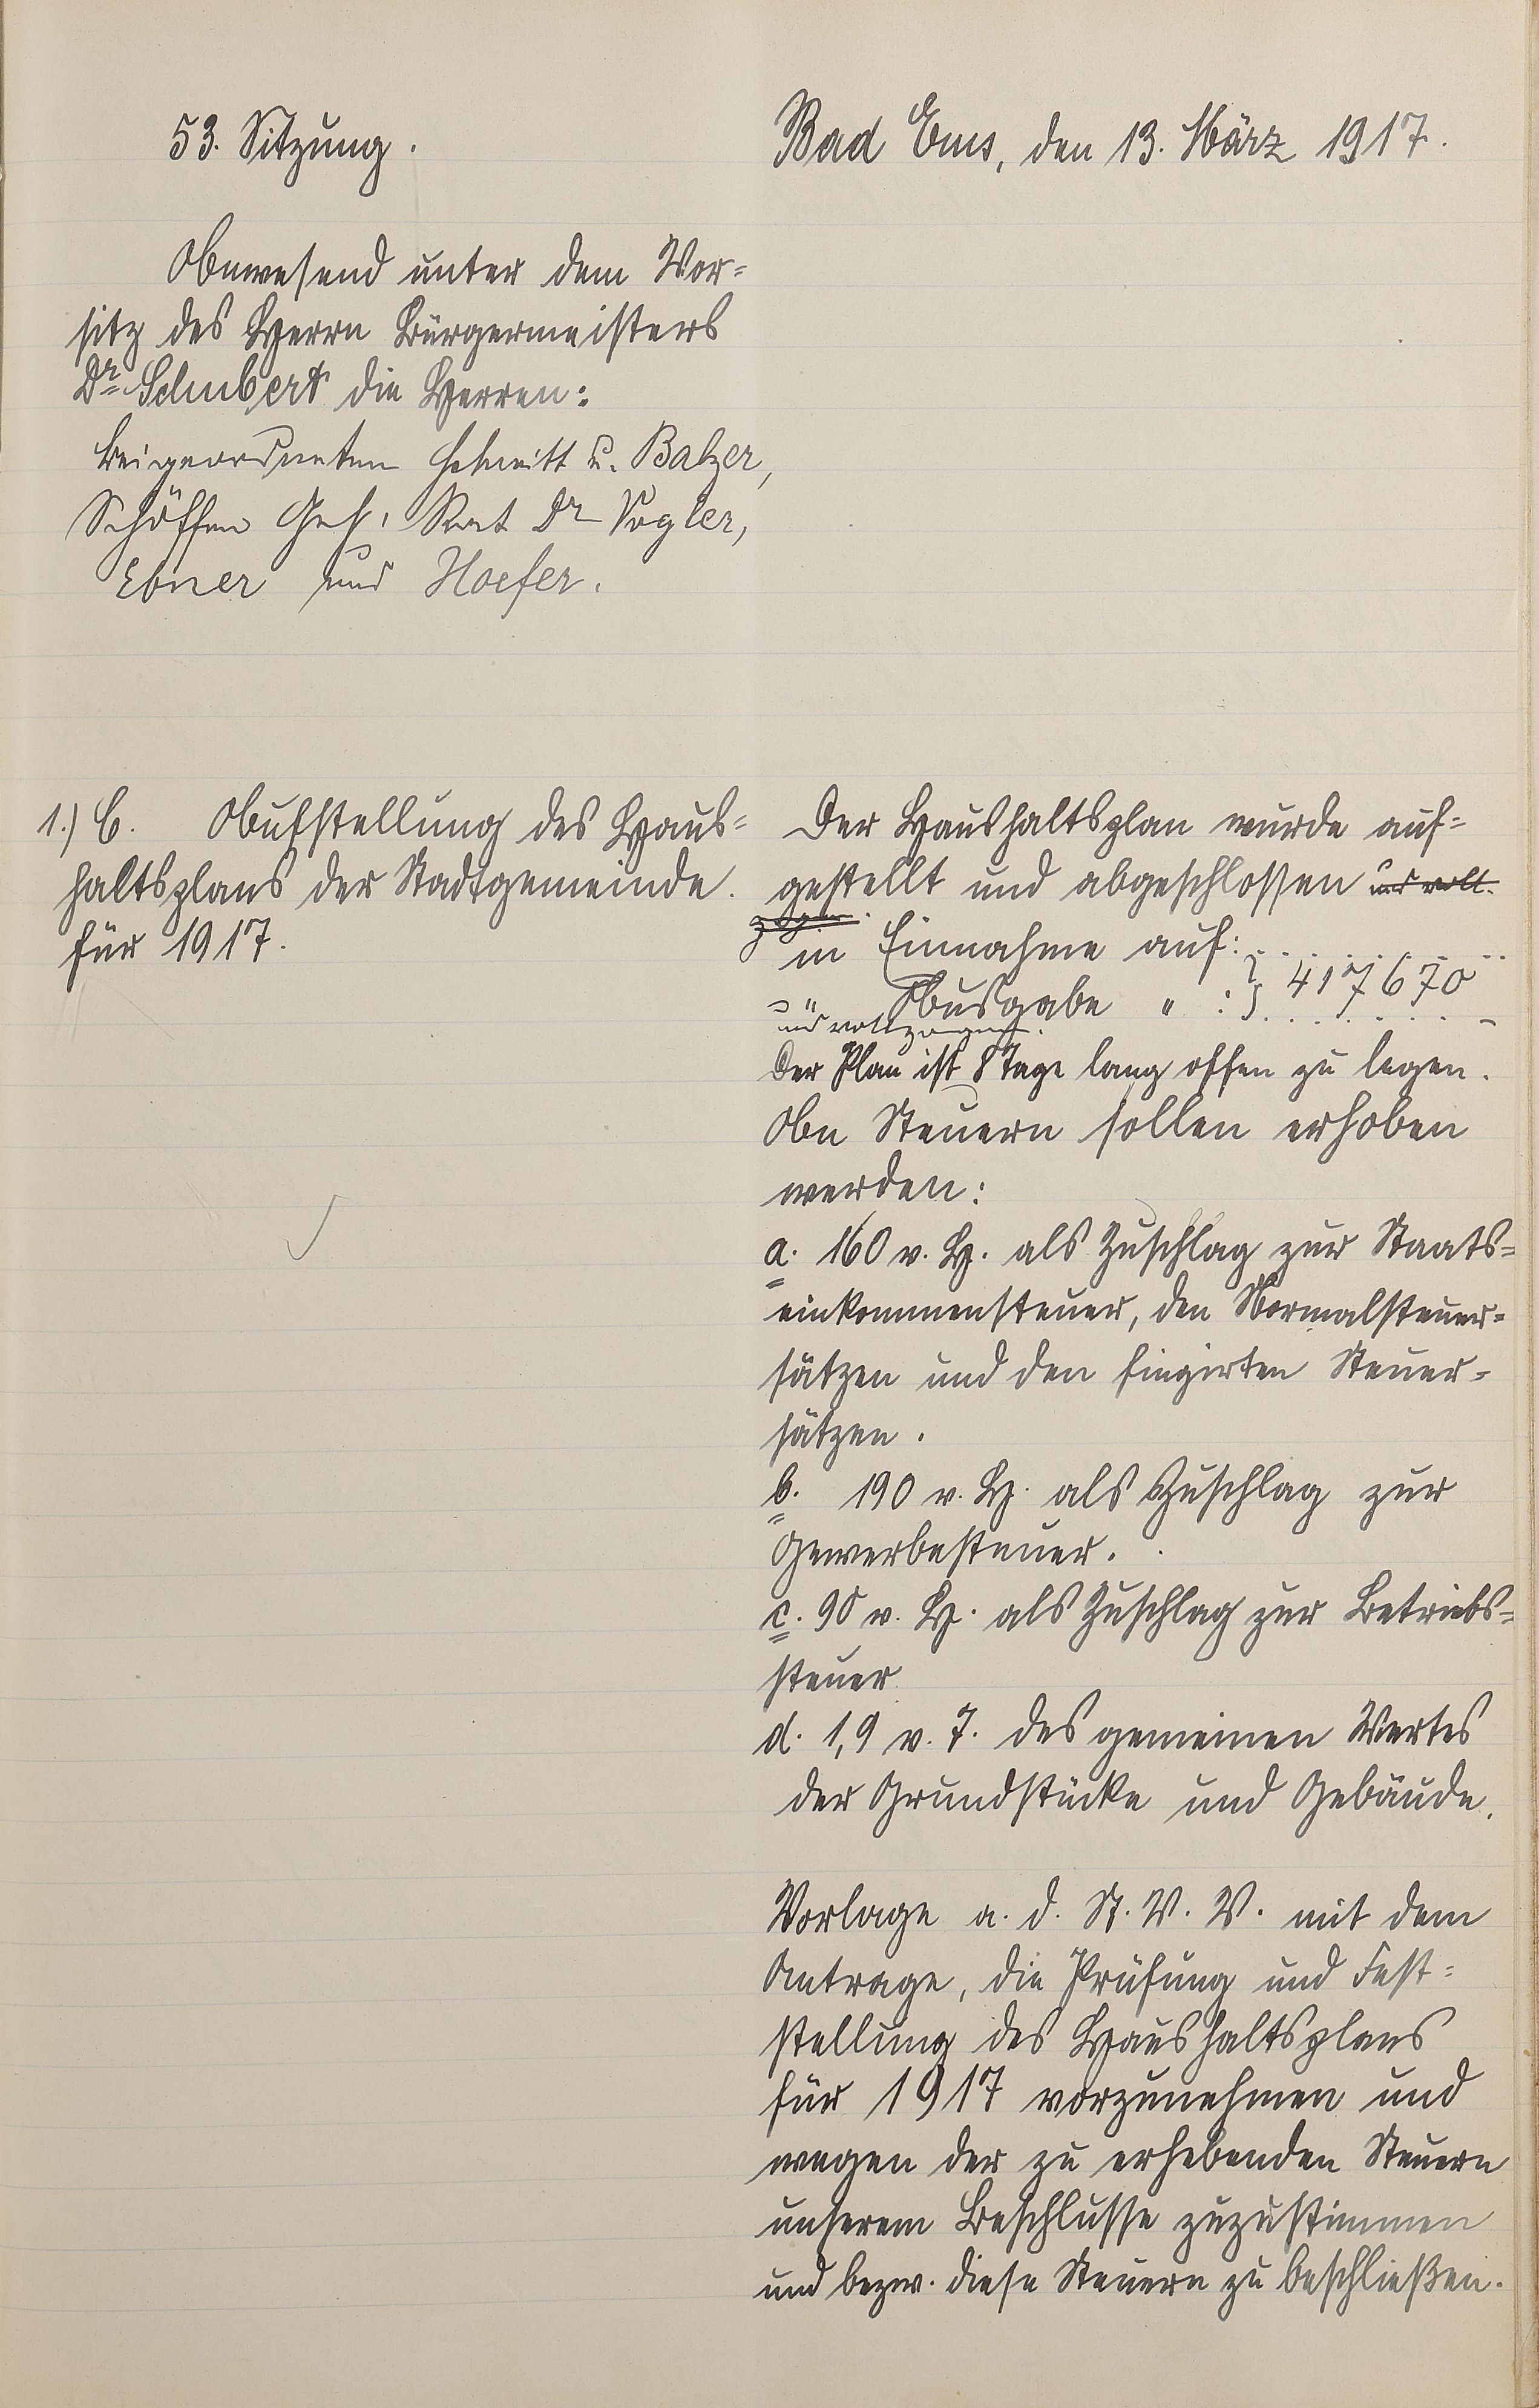 53. Sitzung.
Bad Ems, den 13. März 1917.
Anwesend unter dem Vor=
sitz des Herrn Bürgermeisters
Dr. Schubert die Herren:
Beigeordneten Schmitt u. Balzer,
Schöffen Geh. Rat Dr Vogler,
Ebner und Hoefer.
1.) C. Aufstellung des Haus=
haltsplans der Stadtgemeinde.
für 1917.
Der Haushaltsplan wurde auf=
gestellt und abgeschlossen und voll.
zogen.
in Einnahme auf: . . . . . . .
u " Ausgabe " : } 417670 . . . . . . . –
und vollzogen.
Der Plan ist 8 Tage lang offen zu legen.
An Steuern sollen erhoben
werden:
a. 160 v. H. als Zuschlag zur Staats=
einkommensteuer, den Normalsteuer=
sätzen und den fingirten Steuer=
sätzen.
b. 190 v. H. als Zuschlag zur
Gewerbesteuer.
c. 90 v. H. als Zuschlag zur Betriebs=
steuer
d. 1,9 v. T. des gemeinen Wertes
der Grundstücke und Gebäude.
Vorlage a. d. St. V. V. mit dem
Antrage, die Prüfung und Fest=
stellung des Haushaltsplans
für 1917 vorzunehmen und
wegen der zu erhebenden Steuern
unserem Beschlusse zuzustimmen
und bezw. diese Steuern zu beschließen.